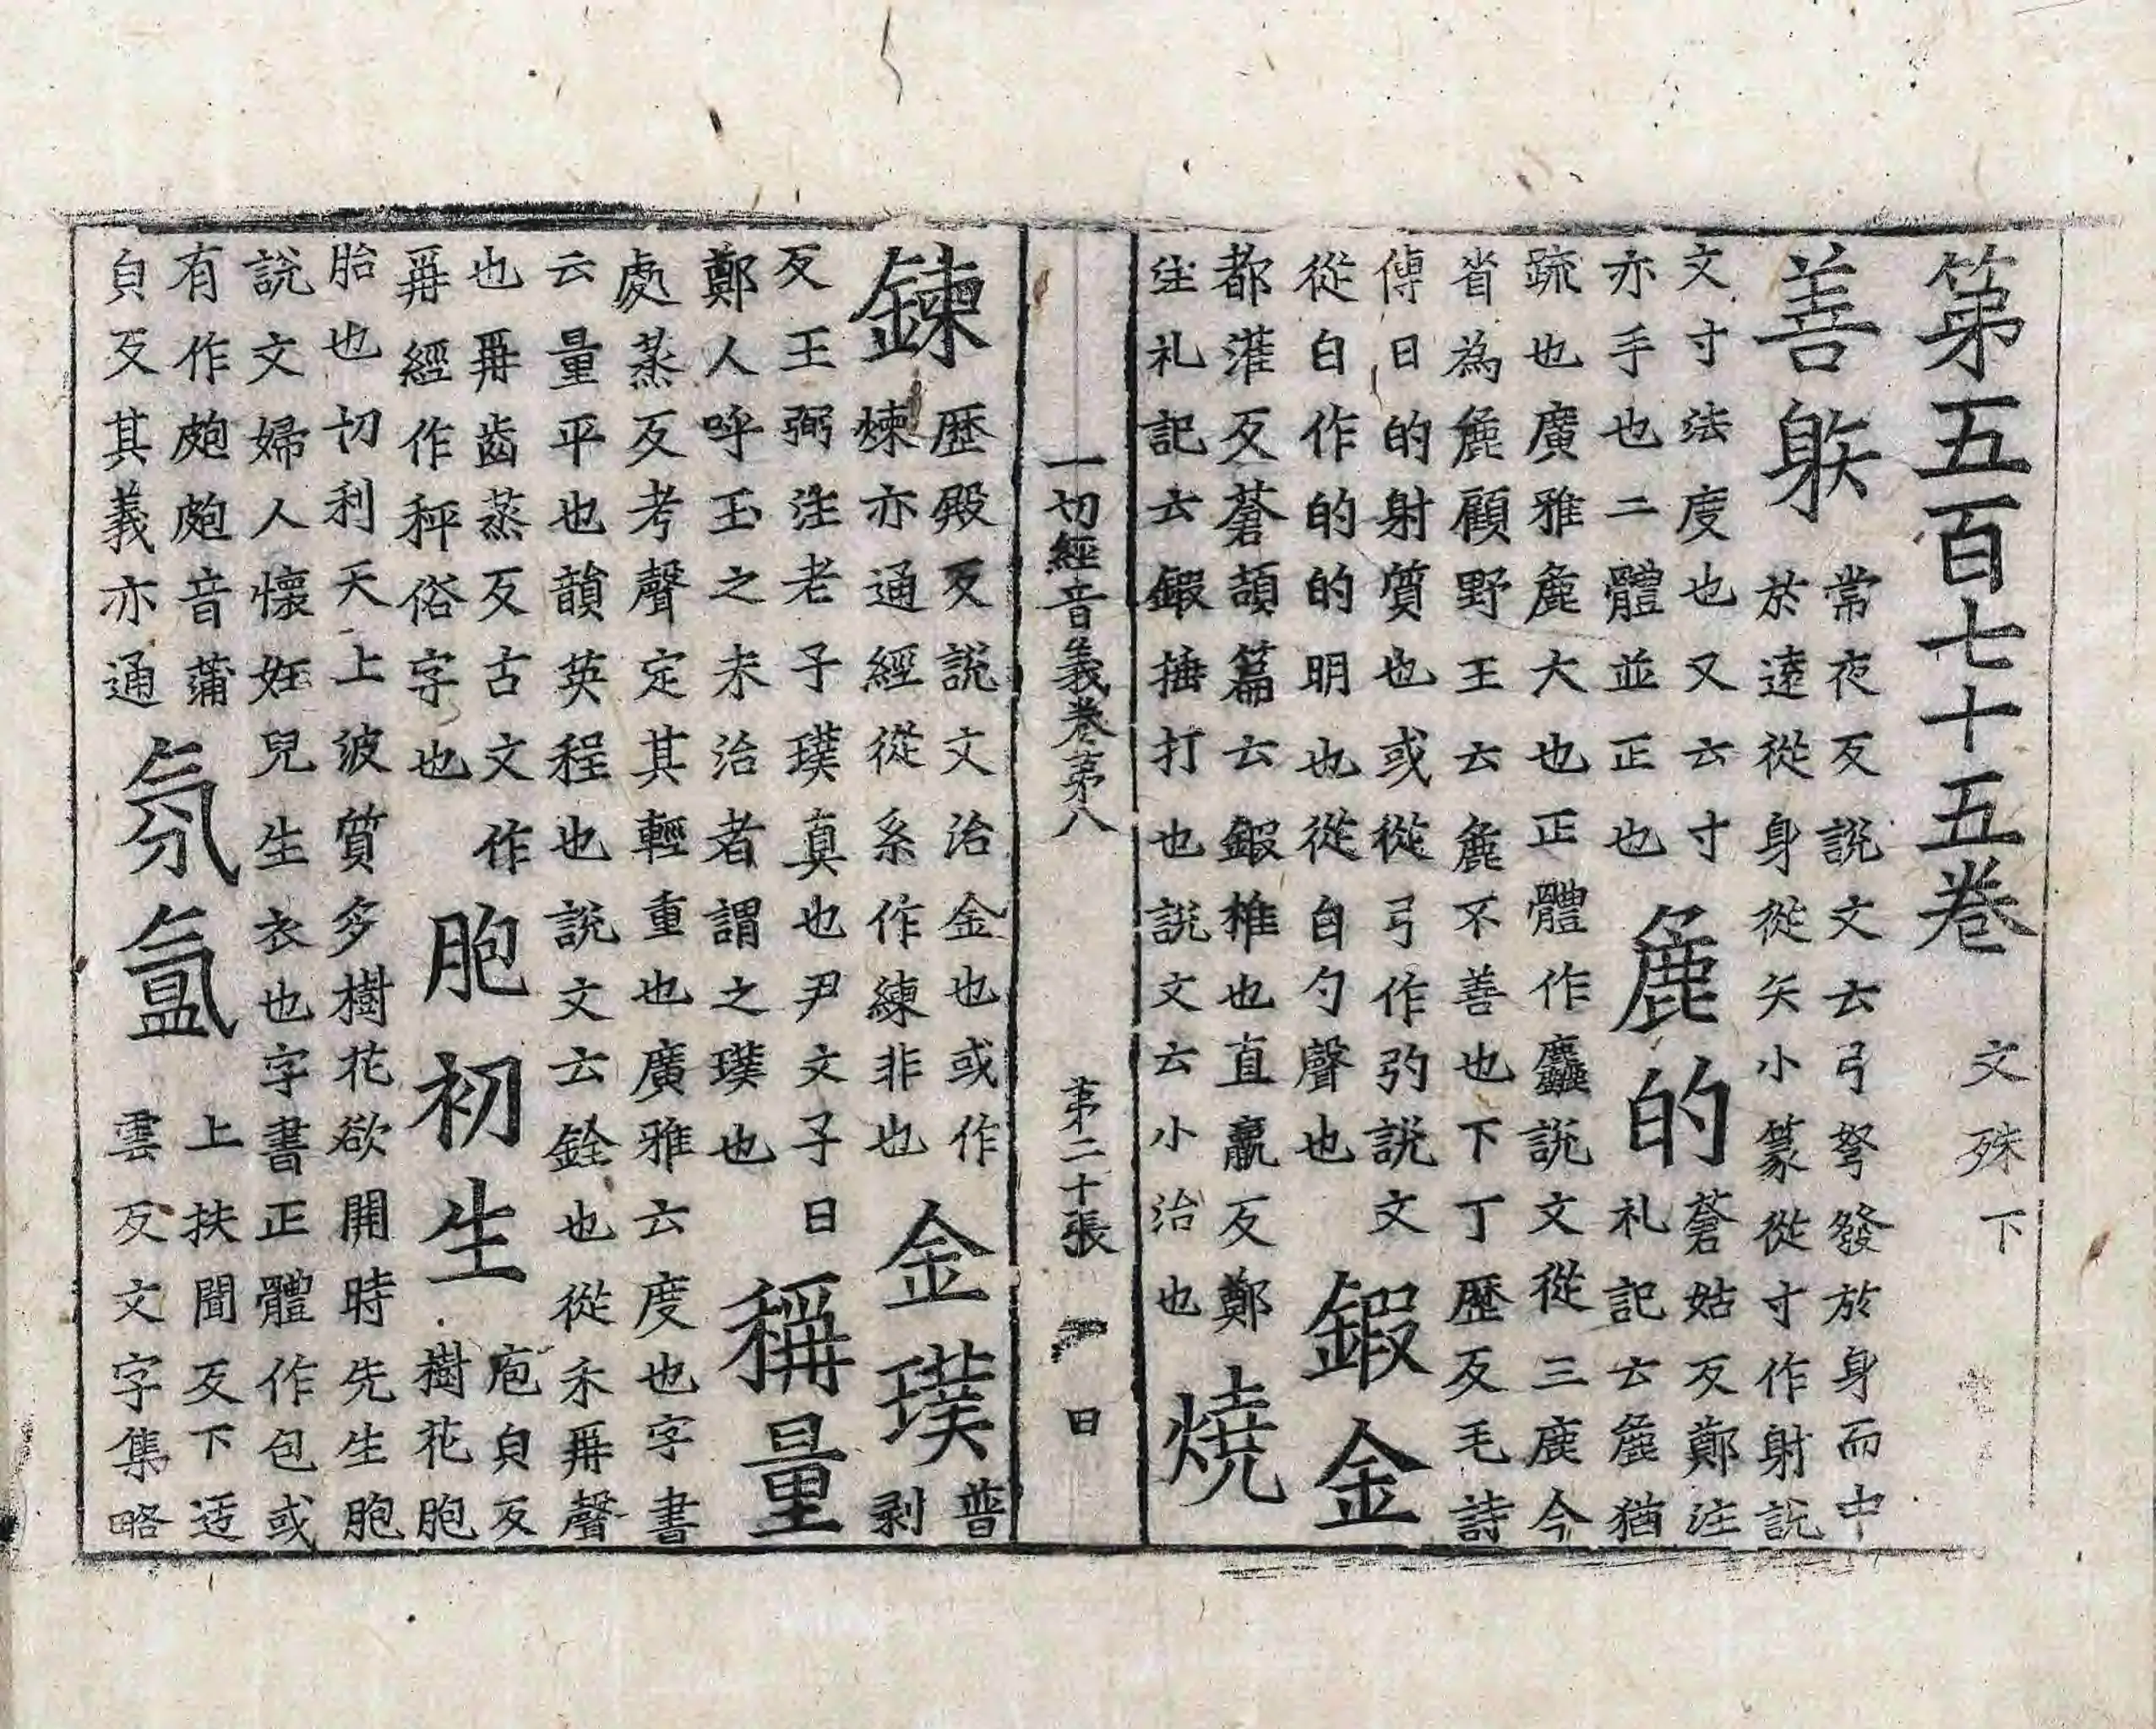 第五百七十五巻 文殊下
善䠶 常夜反說文云弓弩發於身而中
於遠從身從矢小篆從寸作射說
文寸法度也又云寸
亦手也二體並正也 麁的 蒼姑反鄭注
礼記云麁猶
疏也廣雅麁大也正體作麤說文從三鹿今
省為麁顧野王云麁不善也下丁歷反毛詩
傳曰的射質也或從弓作弡說文
從白作的的明也從白勺聲也 鍜金
都灌反蒼頡篇云鍜椎也直羸反鄭
注礼記云鍜捶打也說文云小治也 燒
一切經音義卷苐八 苐二十張 日
鍊 歷殿反說文治金也或作
煉亦通經從糸作練非也 金璞 普
剥
反王弼注老子璞真也尹文子曰
鄭人呼玉之未治者謂之璞也 稱量
處蒸反考聲定其輕重也廣雅云度也字書
云量平也韻英程也說文云銓也從禾爯聲
也爯齒蒸反古文作
爯經作秤俗字也 胞初生 庖皃反
樹花胞
胎也忉利天上波質多樹花欲開時先生胞
說文婦人懷妊兒生衣也字書正體作包或
有作皰皰音蒲
皃反其義亦通 氛氳 上扶聞反下迃
雲反文字集略